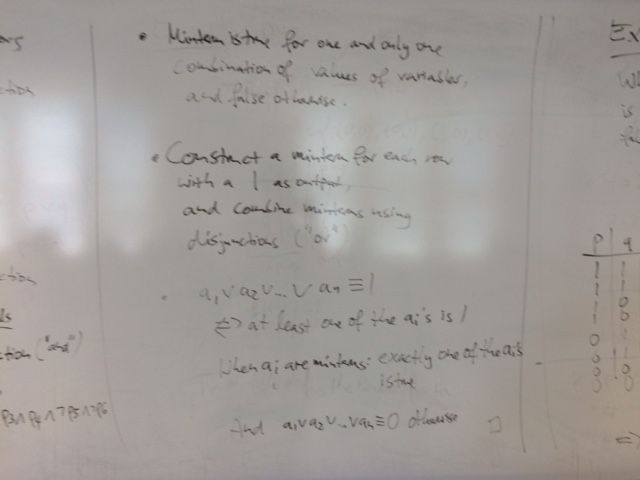 • Minterm is true for one and only one
combination of values of variables,
and false otherwise.
• Construct a minterm for each row
with a 1 as output,
and combine minterms using
disjunctions ("or")
• a1 ∨ a2 ∨ ... ∨ an ≡ 1
⇔ at least one of the ai's is 1
When ai are minterms: exactly one of the ai's
is true
And a1 ∨ a2 ∨ ... ∨ an ≡ 0 otherwise □
ction
ction
ction ("and")
p3 ∧ p4 ∧ ¬p5 ∧ ¬p6
Ex
Wh
is
p q
1 1
1 1
1 0
1 0
0 1
0 1
0 0
0 0
=>